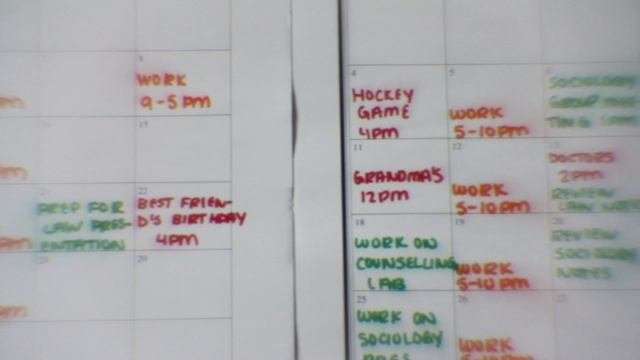 8
WORK
9-5 PM
PM
15
PM
21
PREP FOR
LAW PRES-
ENTATION
22
BEST FRIEN-
D'S BIRTHDAY
4PM
PM
28
29
PM
4
HOCKEY
GAME
4PM
5
WORK
5-10PM
SOCIOLOGY
GROUP MEE
TING 1PM
11
GRANDMA'S
12PM
12
WORK
5-10PM
13
DOCTORS
2PM
REVIEW
LAW NOTES
18
WORK ON
COUNSELLING
LAB
19
WORK
5-10PM
20
REVIEW
SOCIOLOGY
NOTES
25
WORK ON
SOCIOLOGY
26
WORK
27